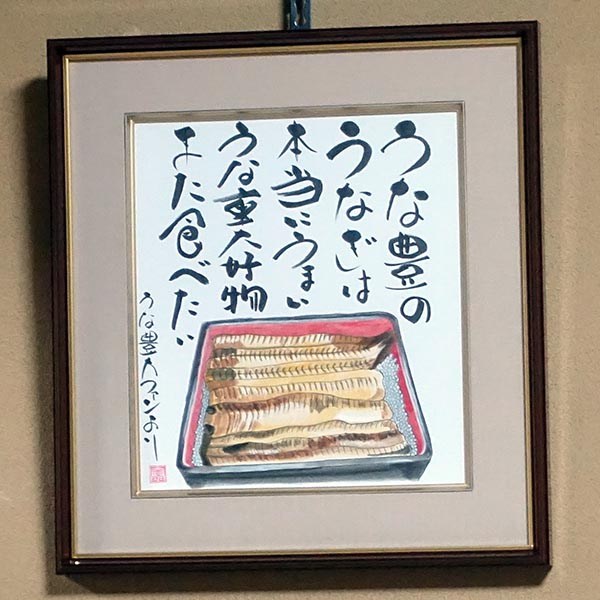 うな豊の
うなぎは
本当にうまい
うな重大好物
また食べたい
うな豊大ファンより